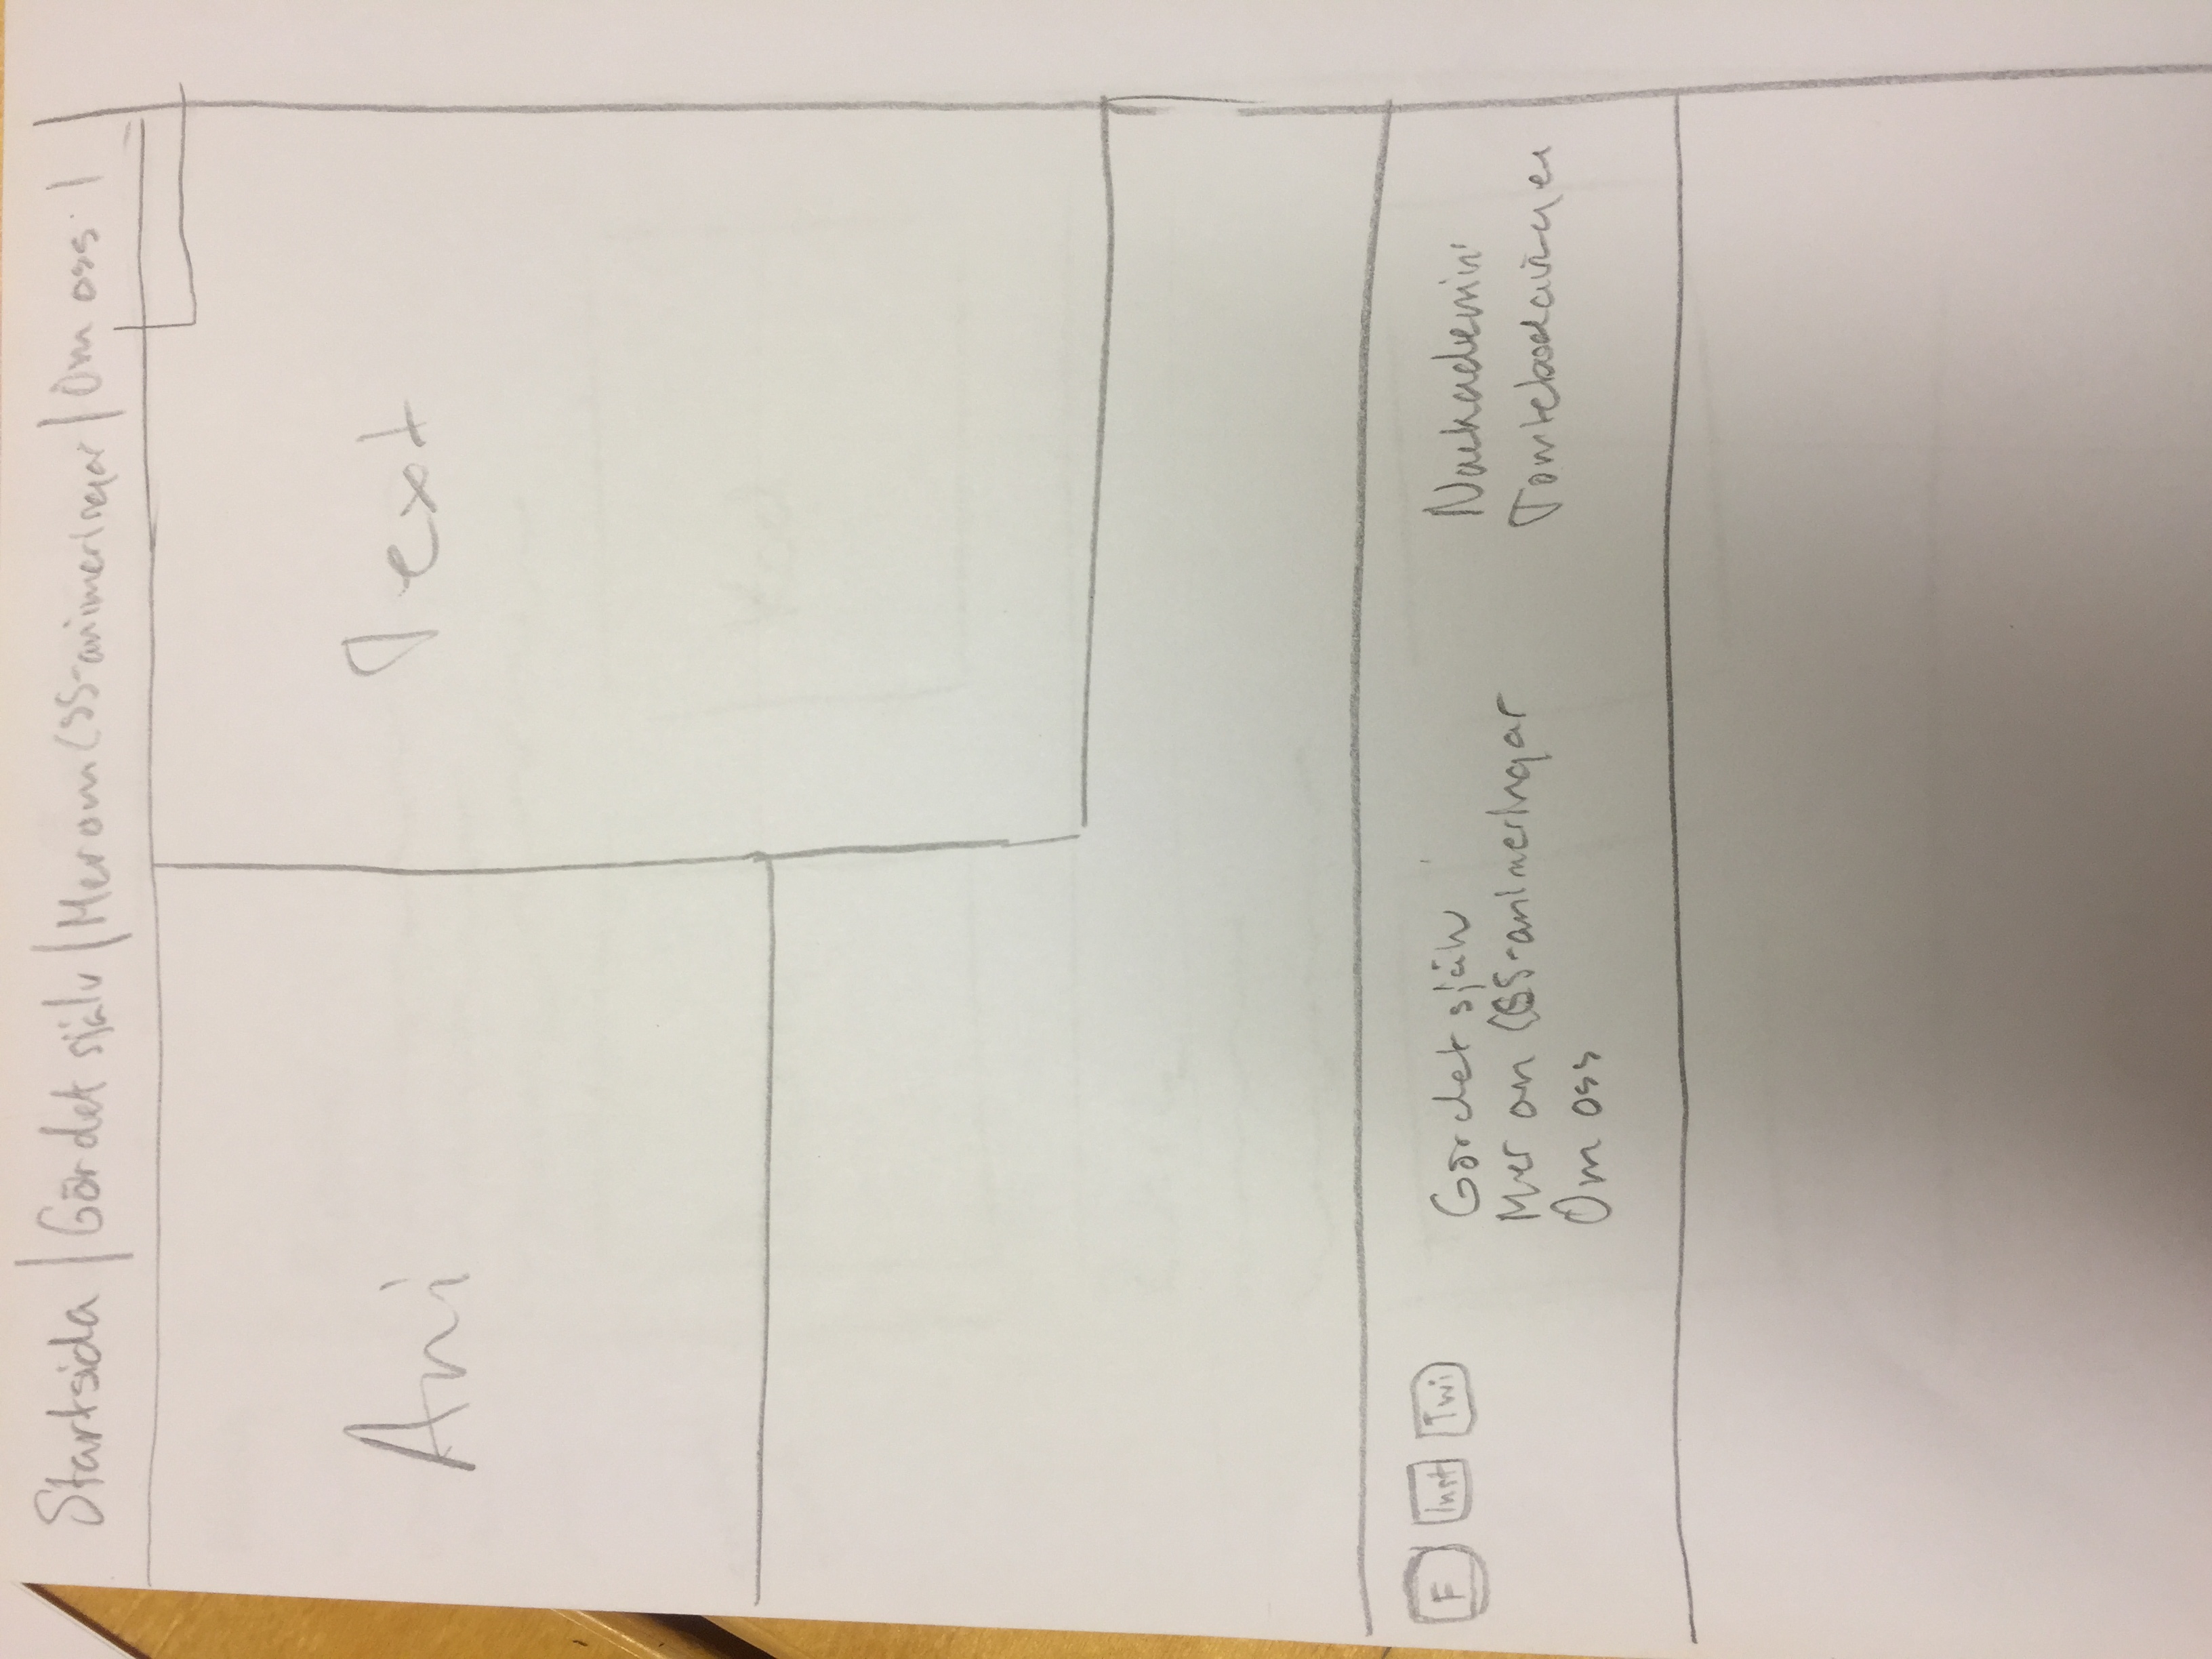 Startsida | Gör det själv | Mer om CSS-animeringar | Om oss |
Ani
Text
Kod
F Inst Twi
Gör det själv
Mer om CSS-animeringar
Om oss
Nackademin
Tomtebodavägen